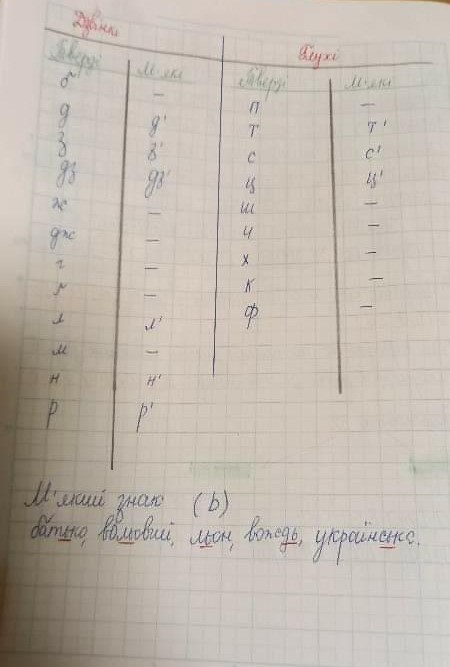 Дзвінкі Глухі
Тверді М'які Тверді М'які
б — п —
д д' т т'
з з' с с'
дз дз' ц ц'
ж — ш —
дж — ч —
г — х —
ґ — к —
л л' ф —
м —
н н'
р р'
М'який знак (ь)
батько, вольовий, льон, вождь, українська.